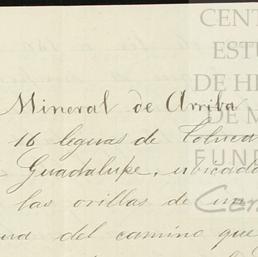 CEN
ESTU
DE HI
Mineral de Arriba
DE M
16 leguas de Toluca
FUND
Guadalupe, ubicada
las orillas de una
Ca
del camino que